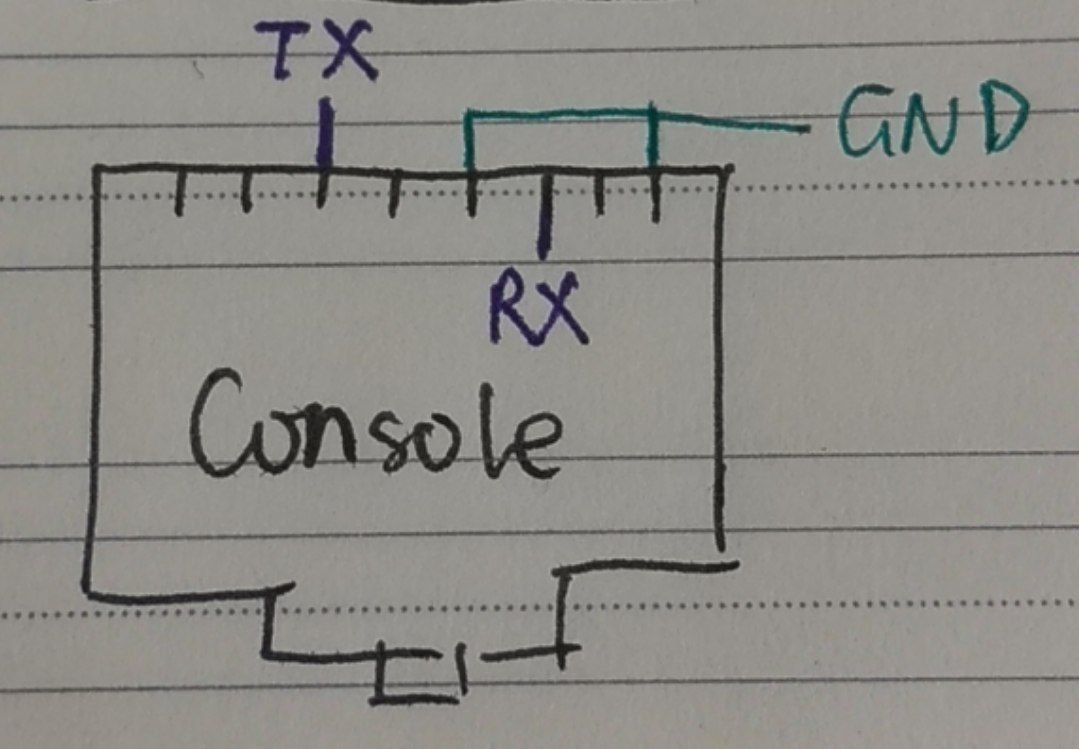 TX
GND
RX
Console